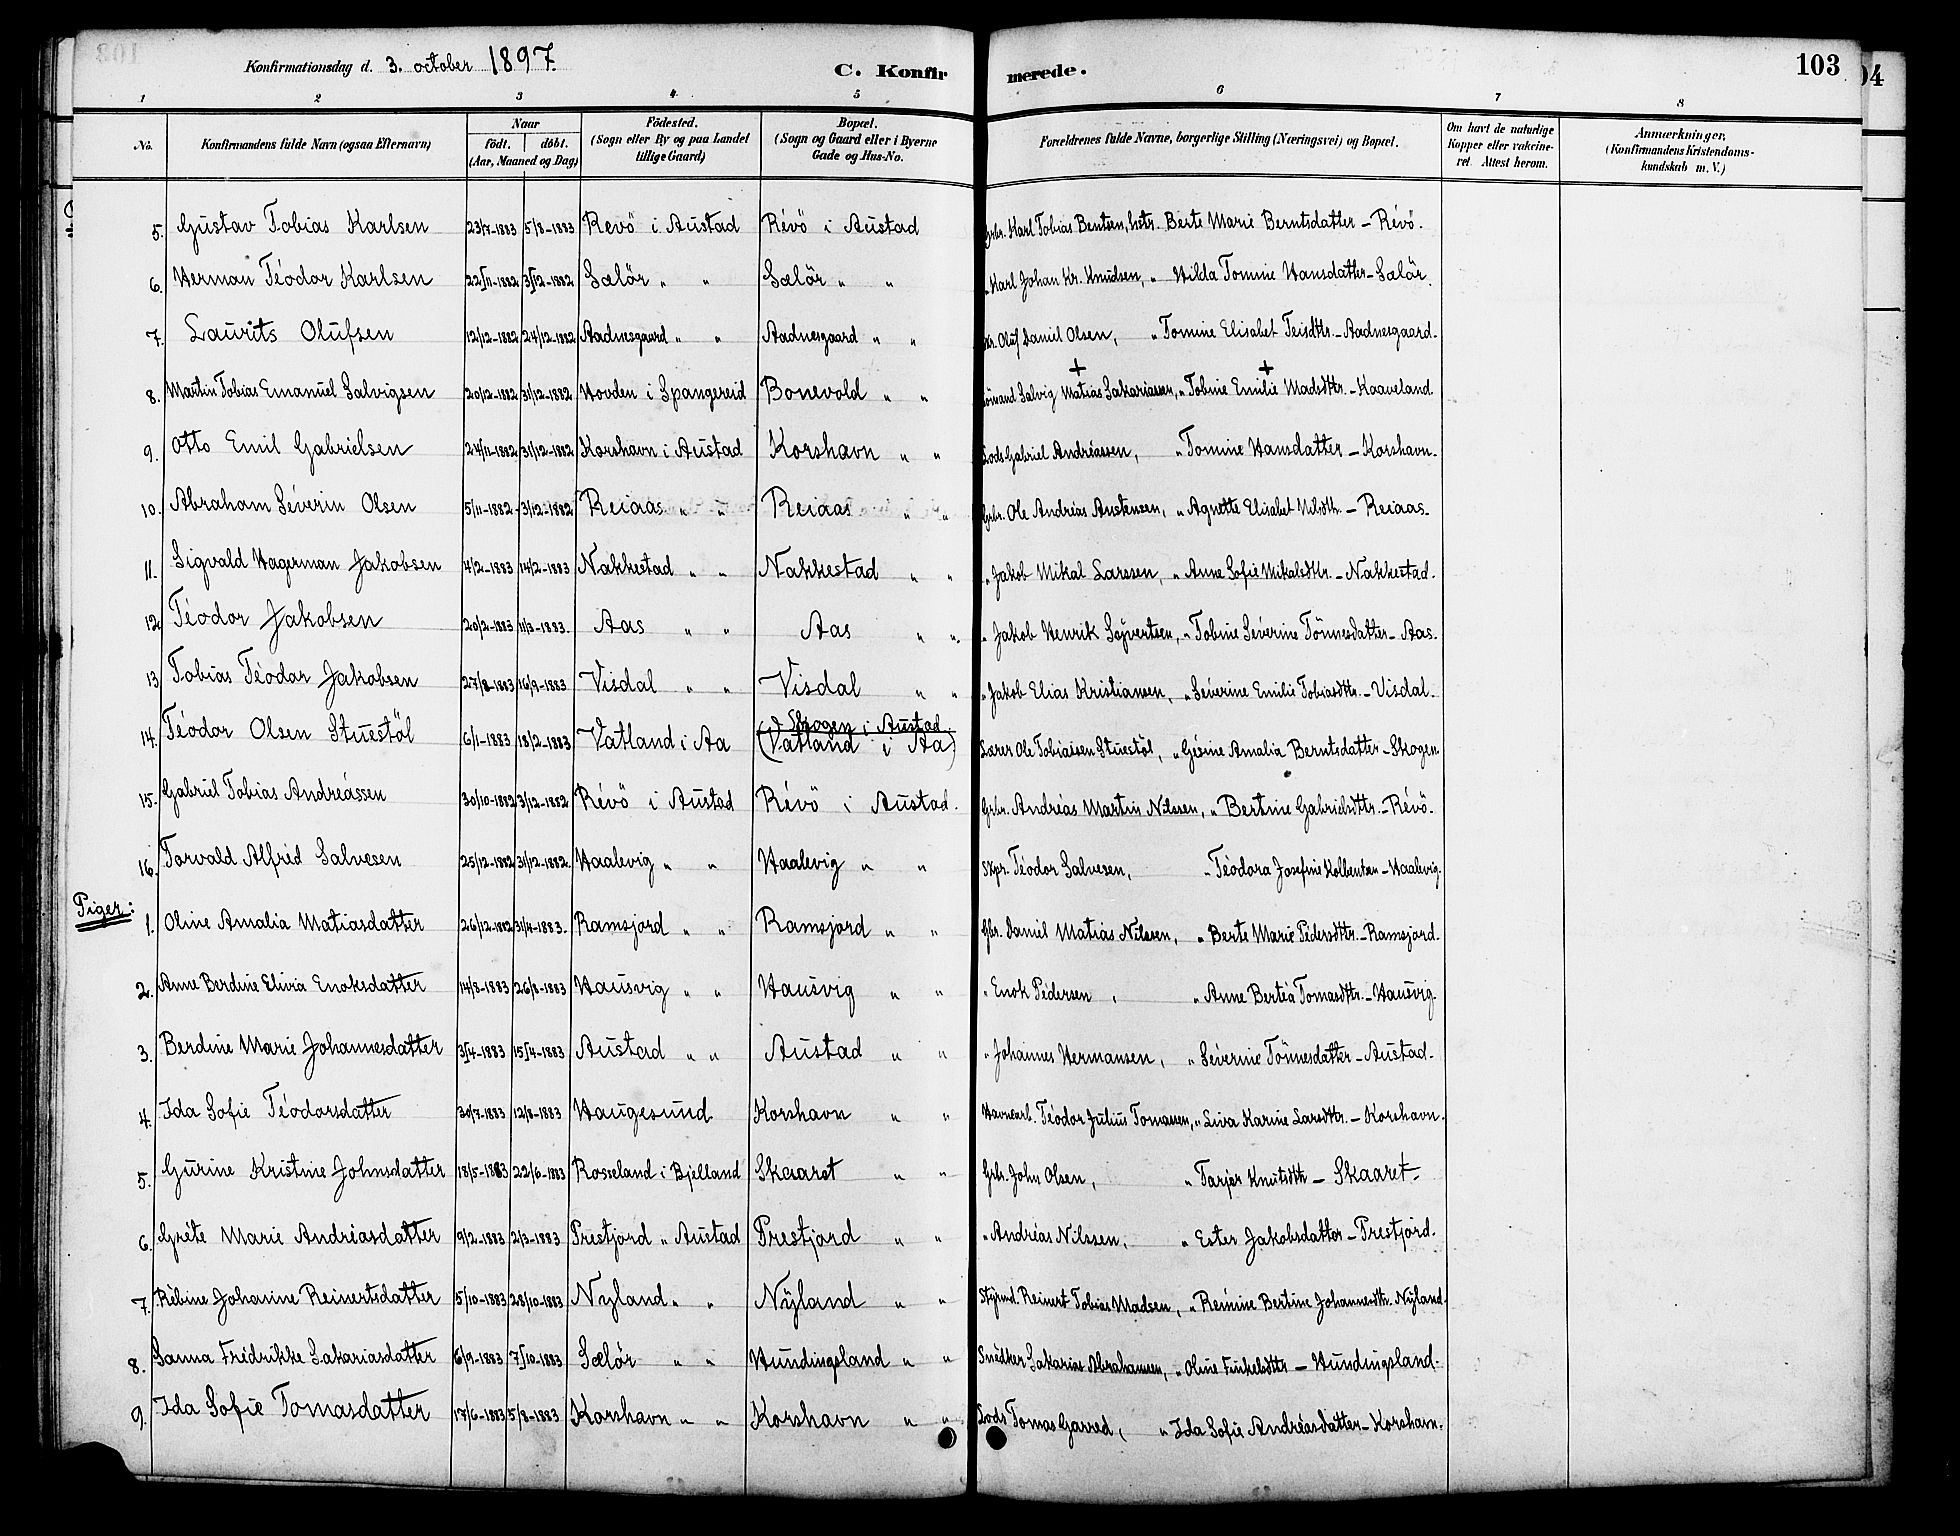 Konfirmationsdag d. 3. october 1897. C. Konfirmerede. 103
1 2 3 4 5 6 7 8
No. Konfirmandens fulde Navn (ogsaa Efternavn) Naar født. døbt. (Aar, Maaned og Dag) Fødested. (Sogn eller By og paa Landet tillige Gaard) Bopæl. (Sogn og Gaard eller i Byerne Gade og Hus-No. Forældrenes fulde Navne, borgerlige Stilling (Næringsvei) og Bopæl. Om havt de naturlige Kopper eller vakcineret. Attest herom. Anmærkninger, (Konfirmandens Kristendomskundskab m. V.)
5. Gustav Tobias Karlsen 23/7-1883 5/8-1883 Revö i Austad Révö i Austad Grbr. Karl Tobias Bentsen, hstr. Berte Marie Berntsdatter - Révö.
6. Herman Téodor Karlsen 22/11-1882 3/12-1882 Sælör " " Sælör " " " Karl Johan Kr. Knudsen, " Hilda Tomine Hansdatter - Sælör.
7. Laurits Olufsen 12/12-1882 24/12-1882 Aadnesgaard " " Aadnesgaard " " Oluf Daniel Olsen, " Tomine Elisabet Teisdtr. - Aadnesgaard.
8. Martin Tobias Emanuel Salvigsen 20/12-1882 31/12-1882 Hovden i Spangereid Bonevold " " Sömand Salvig + Matias Sakariassen, " Tobine Emilie + Madsdtr. - Kaaveland
9. Otto Emil Gabrielsen 24/11-1882 31/12-1882 Korshavn i Austad Korshavn " " Lods Gabriel Andréassen, " Tomine Hansdatter - Korshavn.
10. Abraham Séverin Olsen 5/11-1882 3/12-1882 Reiaas " " Reiaas " " Grbr. Ole Andréas Austensen, " Agnette Elisabet Nilsdtr. - Reiaas.
11. Sigvald Hagerman Jakobsen 4/2-1883 14/2-1883 Nakkestad " " Nakkestad " " " Jakob Mikal Larssen, " Anne Sofie Mikalsdtr. - Nakkestad.
12. Téodor Jakobsen 20/2-1883 11/3-1883. Aas " " Aas " " " Jakob Henrik Sÿvertsen, " Tobine Séverine Tönnesdatter - Aas.
13 Tobias Téodor Jakobsen 27/8-1883 16/9-1883 Visdal " " Visdal " " " Jakob Elias Kristiansen, " Séverine Emilie Tobiasdtr. - Visdal.
14. Téodor Olsen Stuestöl 6/1-1883 18/2-1883 Vatland i Aa Skogen i Austad (Vatland i Aa) Lærer Ole Tobiassen Stuestöl, " Gésine Amalia Berntsdatter - Skogen
15. Gabriel Tobias Andreássen 30/10-1882 3/12-1882 Révö i Austad Révö i Austad. Grbr. Andréas Martin Nilssen, " Bertine Gabrielsdtr. - Révö.
16. Torvald Alfred Salvesen 25/12-1882 31/12-1882. Haalevig " " Haalevig " " Skpr. Téodor Salvesen, " Téodora Josefine Kolbentsen - Haalevig.
Piger:
1. Oline Amalia Matiasdatter 26/12-1882 31/4-1883. Ramsjord " " Ramsjord " " Gbr. Daniel Matias Nilssen, " Berte Marie Pedersdtr. - Ramsjord.
2. Anne Berdine Elivia Enoksdatter 14/8-1883 26/8-1883 Hausvig " " Hausvig " " " Enok Pedersen, " Anne Bertéa Tomasdtr. - Hausvig.
3. Berdine Marie Johannesdatter 3/4-1883 15/4-1883 Austad " " Austad " " " Johannes Hermansen, " Séverine Tönnesdatter - Austad.
4. Ida Sofie Téodorsdatter 30/7-1883 12/8-1883 Haugesund Korshavn " " Havnearb. Téodor Julius Tomassen, " Liva Karine Larsdtr. - Korshavn.
5. Gurine Kristine Johnsdatter 18/5-1883 22/6-1883 Rosseland i Bjelland Skaaret " " Grbr. John Olsen, " Tarjer Knutsdtr - Skaaret -
6. Gréte Marie Andréasdatter 9/2-1883 2/3-1883 Prestjord " Austad Prestjord " " " Andréas Nilssen, " Ester Jakobsdatter - Prestjord.
7. Rébine Johanine Reinertsdatter 5/10-1883 28/10-1883 Nyland " " Nÿland " " Stÿrmd. Reinert Tobias Madsen, " Remine Bertine Johannesdtr. Nÿland.
8. Sanna Fredrikke Sakariasdatter 6/9-1883 7/10-1883 Sælör " " Hundingsland " " Snédker Sakarias Abrahamsen, " Oline Finkelsdtr - Hundingsland.
9. Ida Sofie Tomasdatter 17/6-1883 5/8-1883 Korshavn " " Korshavn " " Lods Tomas Garred, " Ida Sofie Andréasdatter - Korshavn.